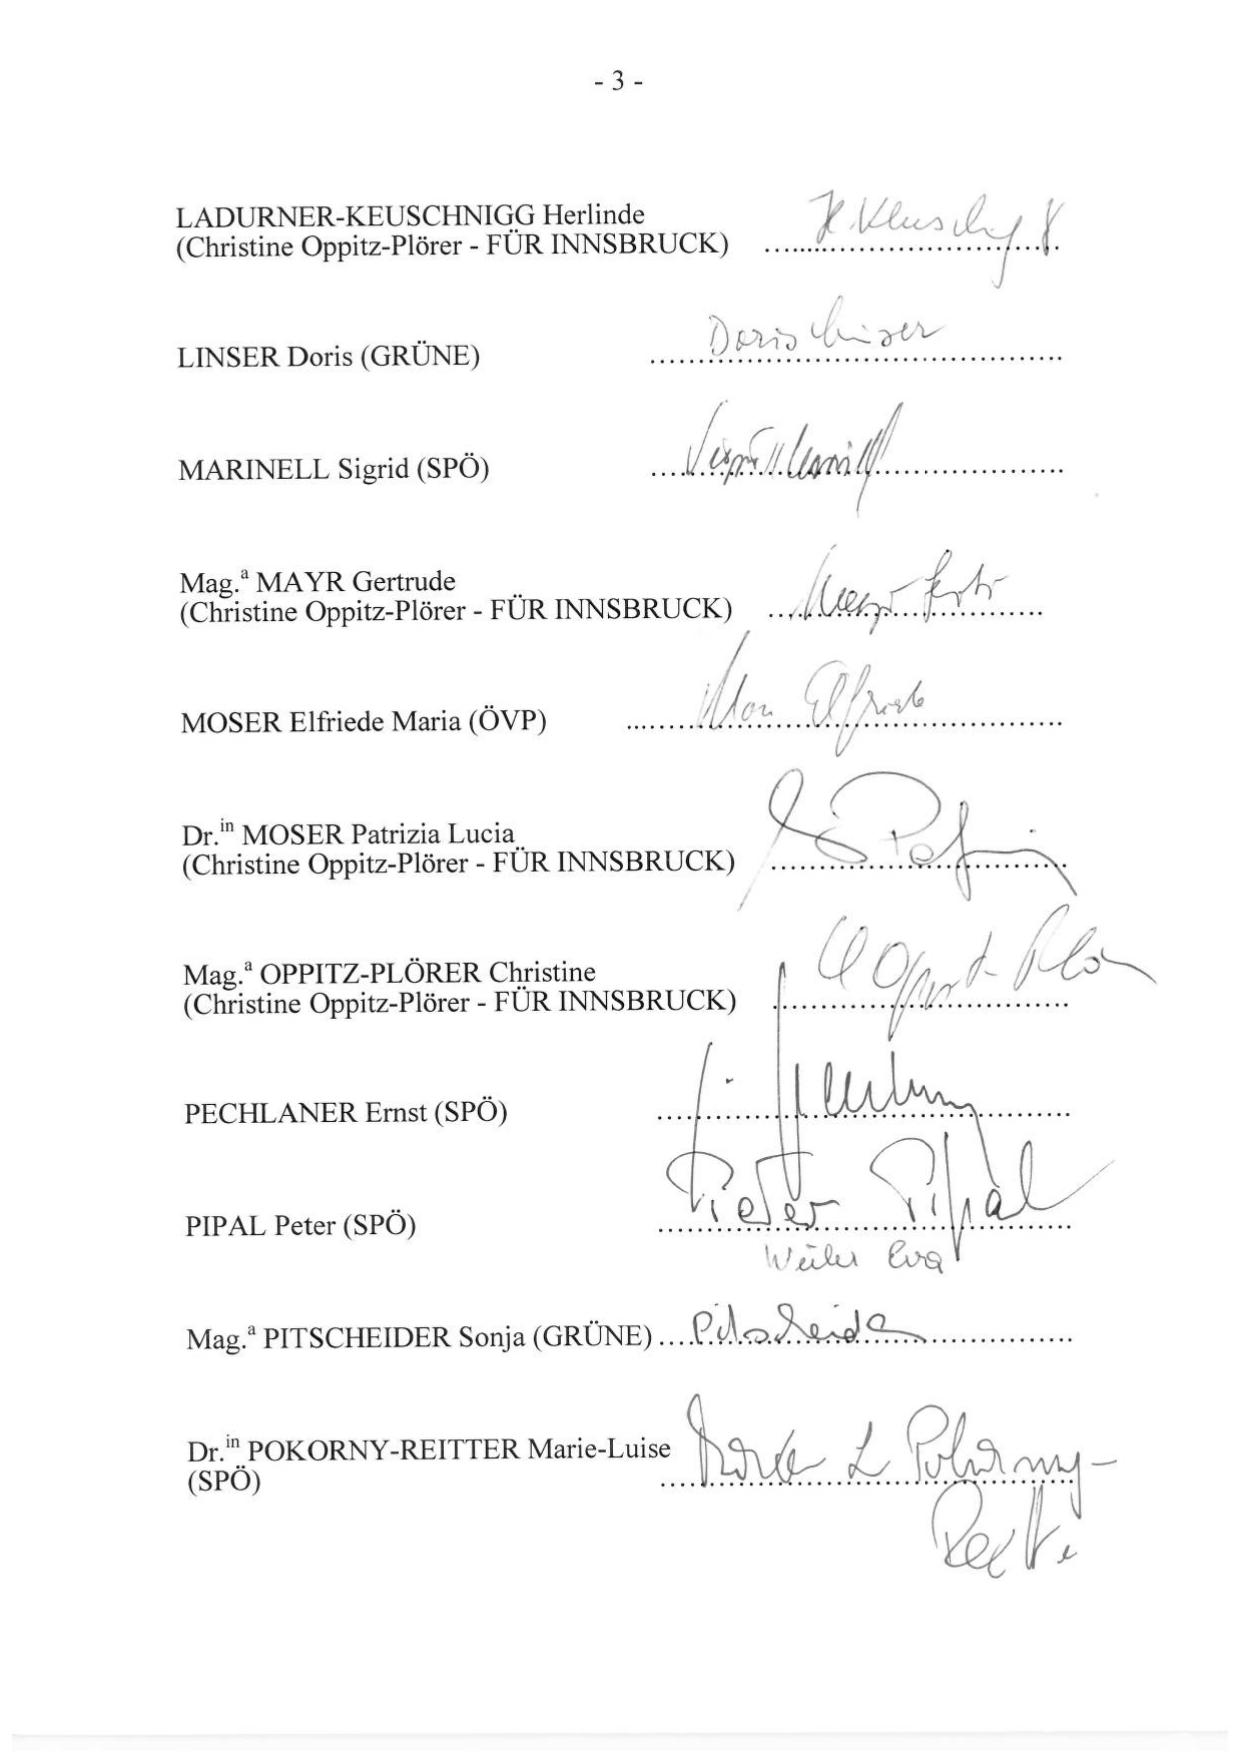 - 3 -
LADURNER-KEUSCHNIGG Herlinde
(Christine Oppitz-Plörer - FÜR INNSBRUCK) ....................................
H. Keuschnigg
LINSER Doris (GRÜNE) ....................................
Doris Linser
MARINELL Sigrid (SPÖ) ....................................
Mag.ᵃ MAYR Gertrude
(Christine Oppitz-Plörer - FÜR INNSBRUCK) ....................................
MOSER Elfriede Maria (ÖVP) ....................................
Elfriede
Dr.ⁱⁿ MOSER Patrizia Lucia
(Christine Oppitz-Plörer - FÜR INNSBRUCK) ....................................
Mag.ᵃ OPPITZ-PLÖRER Christine
(Christine Oppitz-Plörer - FÜR INNSBRUCK) ....................................
PECHLANER Ernst (SPÖ) ....................................
PIPAL Peter (SPÖ) ....................................
Pieter Pipal
Weiler Eva
Mag.ᵃ PITSCHEIDER Sonja (GRÜNE) ....................................
Pitscheider
Dr.ⁱⁿ POKORNY-REITTER Marie-Luise
(SPÖ) ....................................
L Pokorny-